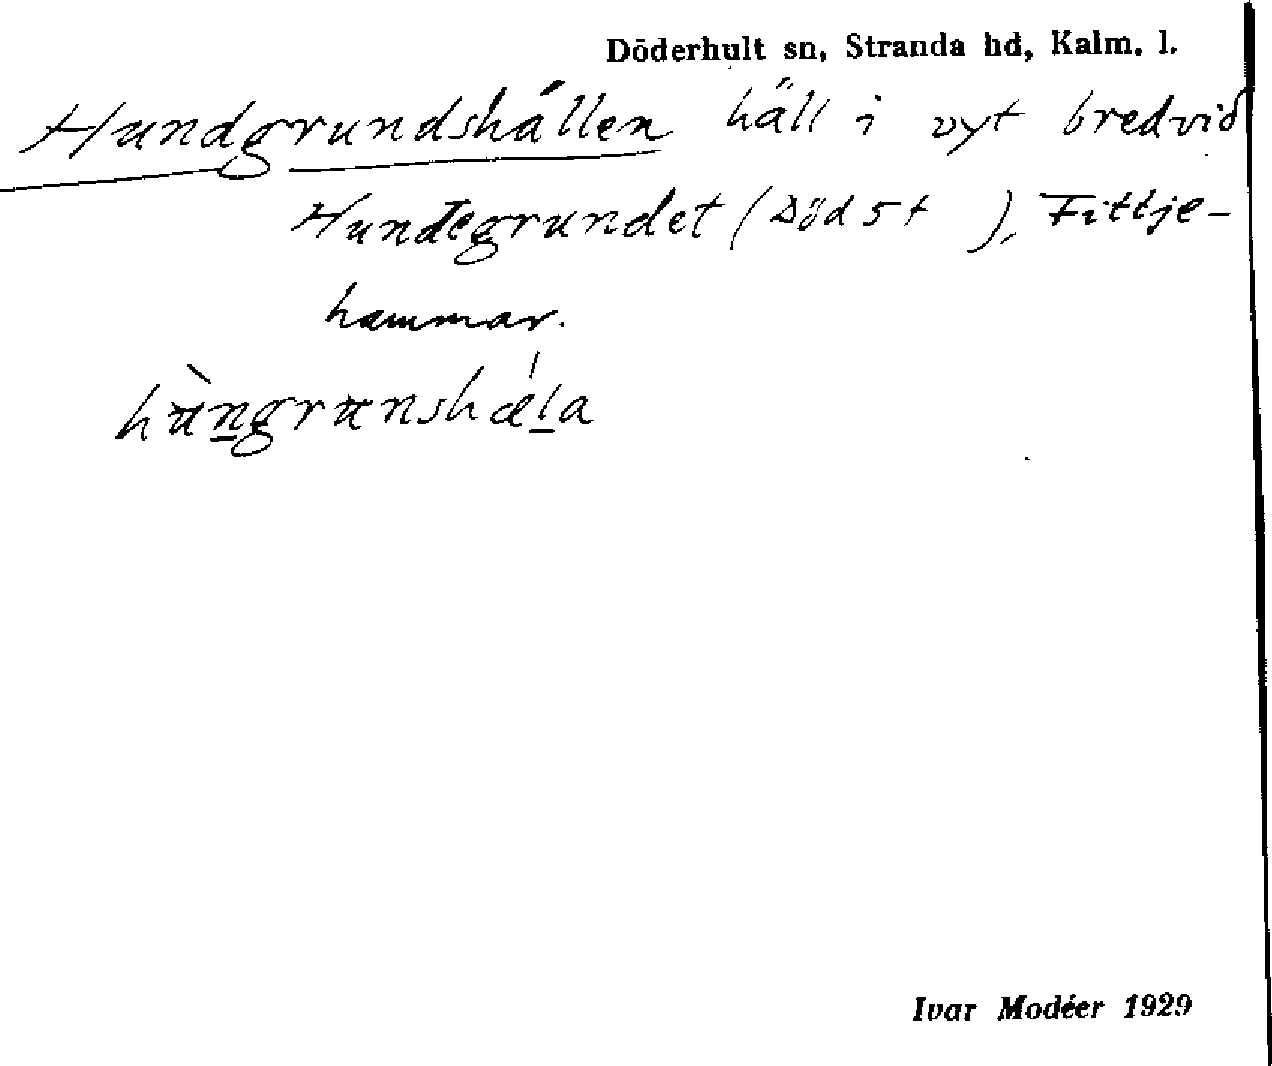 Döderhult sn, Stranda hd, Kalm. l.
Hundgrundshällen häll i vyt bredvid
Hundegrundet (Död st ), Fittje-
hammar.
hùn̲grunshæ̍l̲a
Ivar Modéer 1929